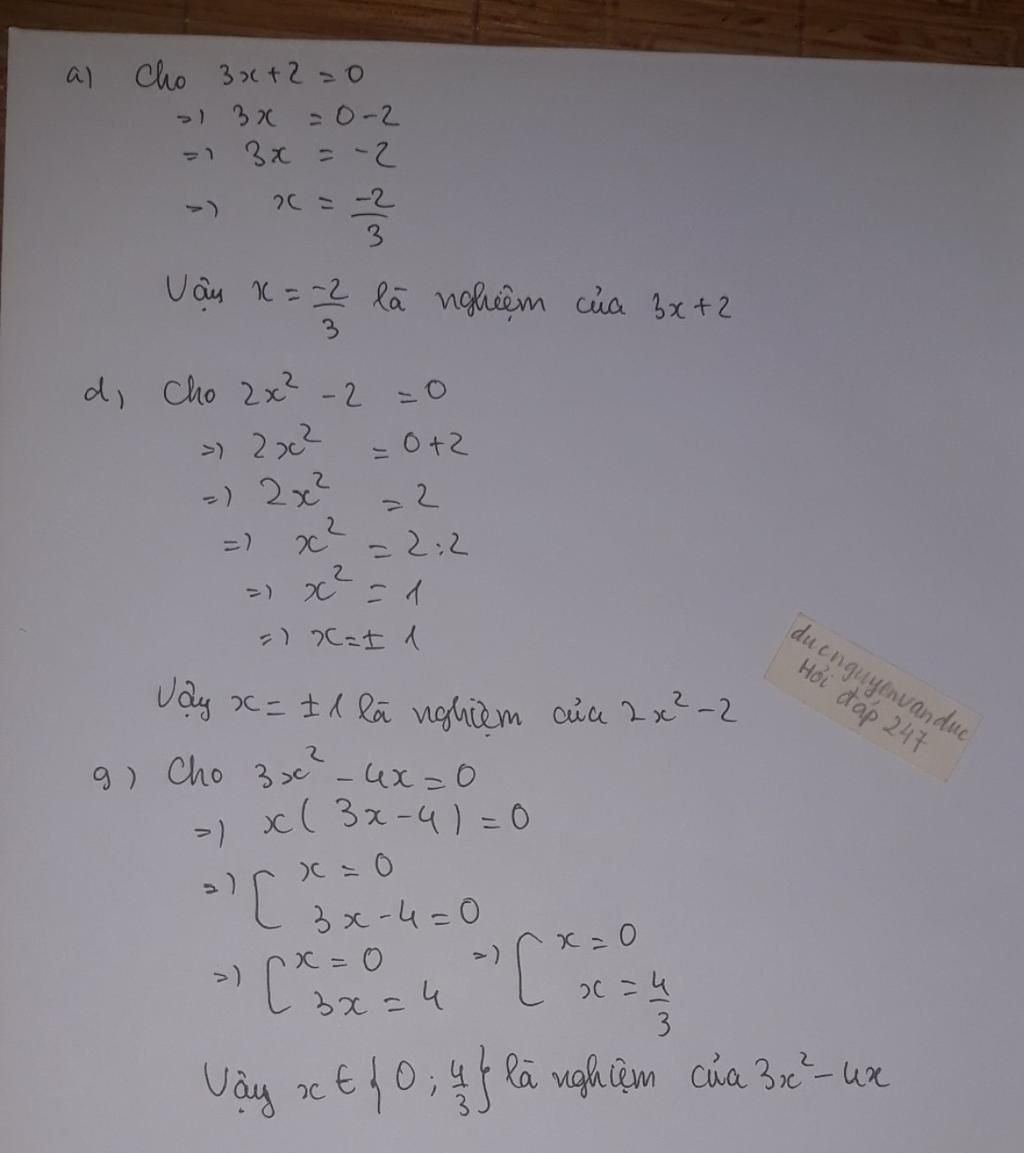 a) Cho 3x+2 = 0
=> 3x = 0-2
=> 3x = -2
=> x = -2/3
Vậy x = -2/3 là nghiệm của 3x+2
d, Cho 2x² - 2 = 0
=> 2x² = 0+2
=> 2x² = 2
=> x² = 2:2
=> x² = 1
=> x = ± 1
Vậy x = ±1 là nghiệm của 2x² - 2
g) Cho 3x² - 4x = 0
=> x( 3x-4) = 0
=> [ x = 0
3x - 4 = 0
=> [ x = 0 => [ x = 0
3x = 4 x = 4/3
Vậy x ∈ { 0 ; 4/3 } là nghiệm của 3x² - 4x
ducnguyenvanduc
Hỏi đáp 247